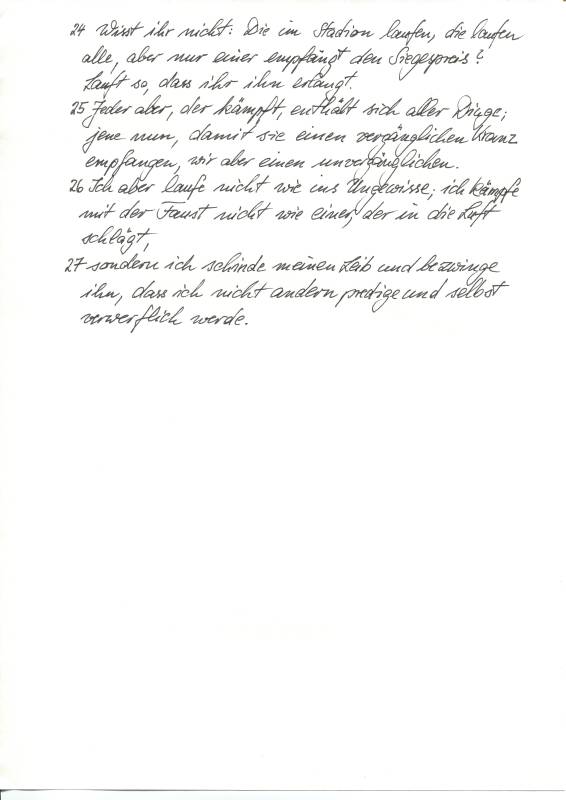 24 Wisst ihr nicht: Die im Stadion laufen, die laufen
alle, aber nur einer empfängt den Siegespreis?
Lauft so, dass ihr ihn erlangt.
25 Jeder aber, der kämpft, enthält sich aller Dinge;
jene nun, damit sie einen vergänglichen Kranz
empfangen, wir aber einen unvergänglichen.
26 Ich aber laufe nicht wie ins Ungewisse; ich kämpfe
mit der Faust nicht wie einer, der in die Luft
schlägt,
27 sondern ich schinde meinen Leib und bezwinge
ihn, dass ich nicht andern predige und selbst
verwerflich werde.